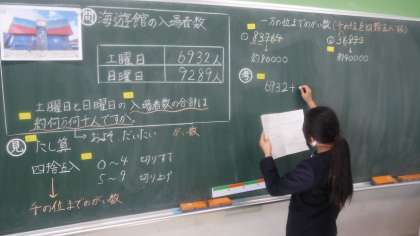 問 海遊館の入場者数
土曜日 6932人
日曜日 9289人
土曜日と日曜日の入場者数の合計は
約何万何千人ですか。
見 たし算 およそ、だいたい がい数
四捨五入 0〜4 切りすて
5〜9 切り上げ
千の位までのがい数
一万の位までのがい数(千の位を四捨五入)
① 83764
約80000
②
約40000
考
6932+